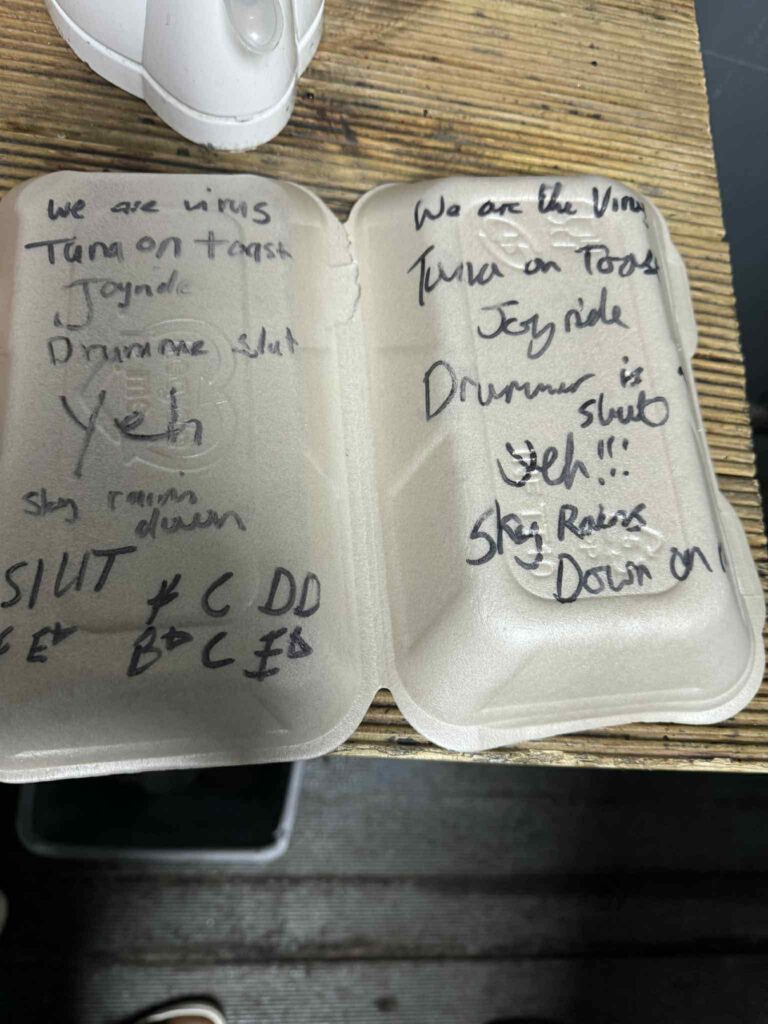 we are virus
Tuna on toast
Joyride
Drummer slut
Yeh
sky rainin
down
SlUT
C DD
Eb
Bb C Eb
We are the Viru
Tuna on Toast
Joyride
Drummer is
slut
Yeh!!!
Sky Rains
Down on